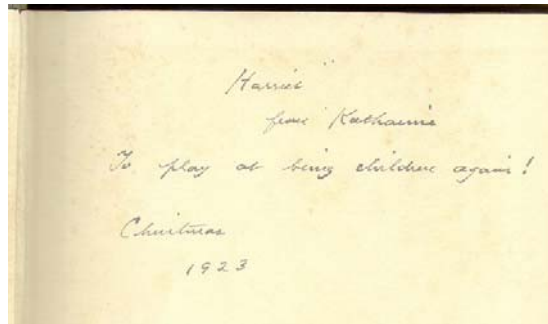 Harriet
from Katharine
To play at being children again!
Christmas
1923